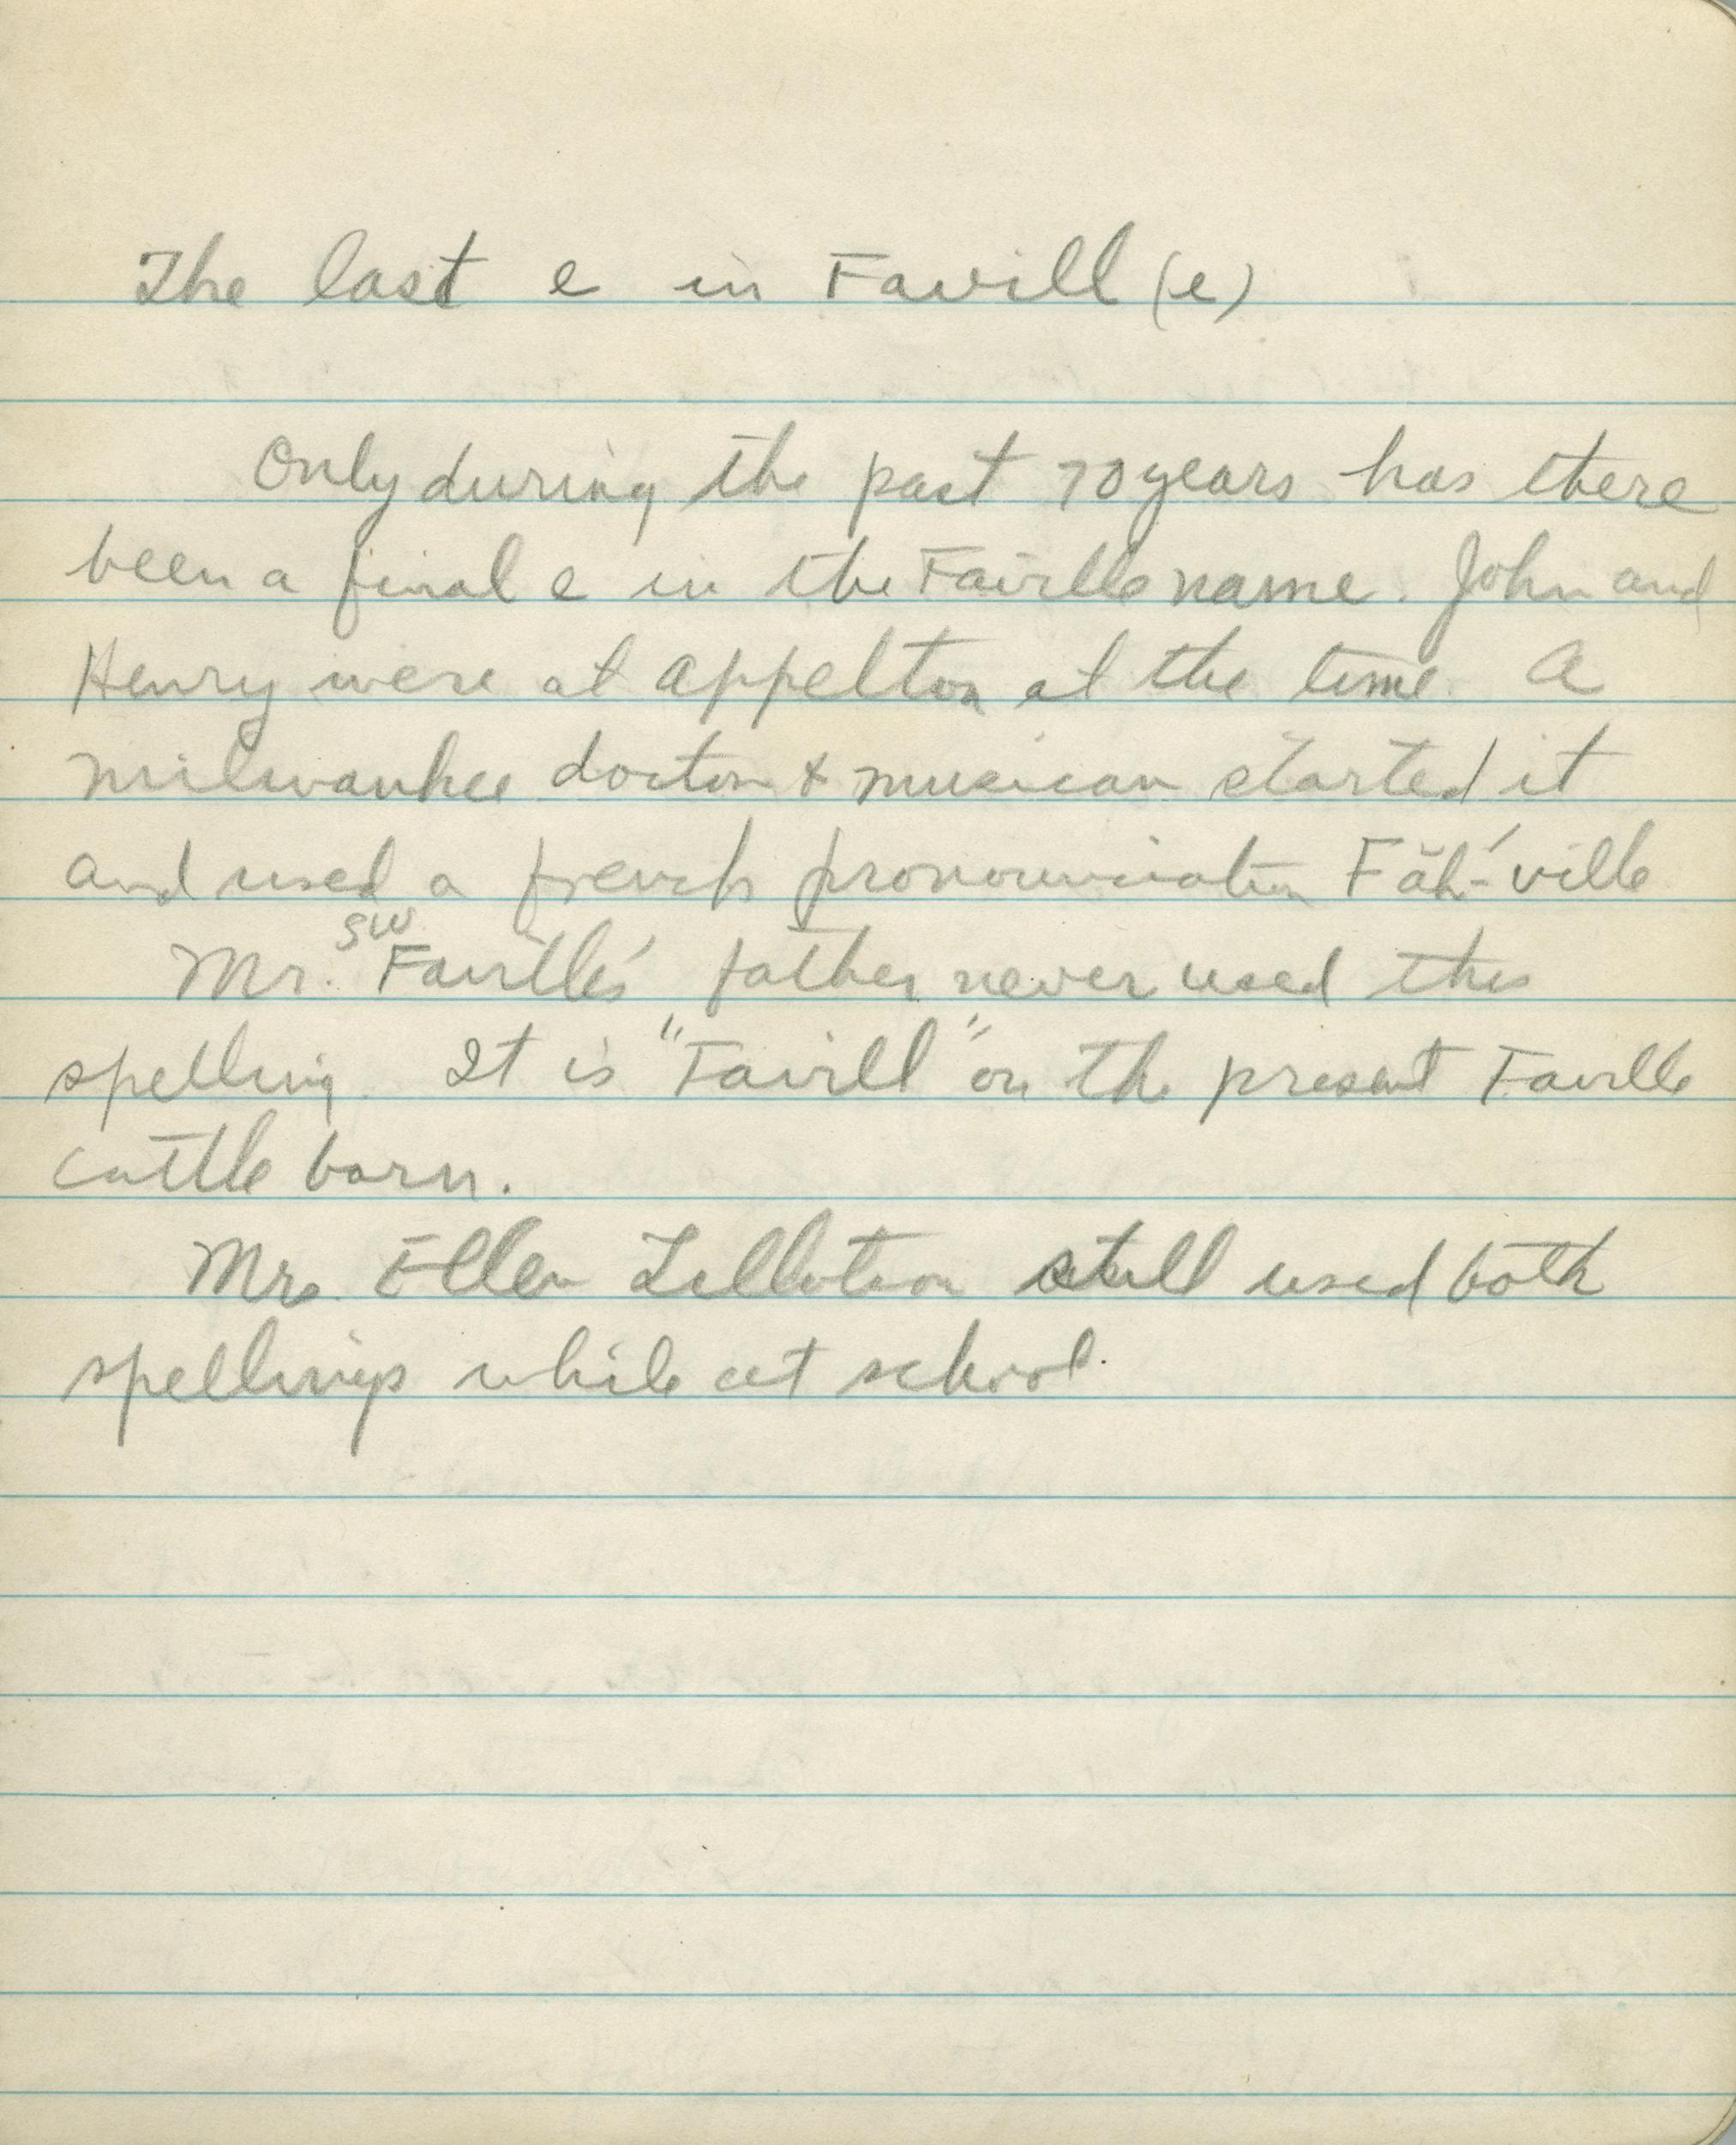 The last e in Favill (e)
Only during the past 70 years has there
been a final e in the Faville name. John and
Henry were at Appelton at the time. A
Milwaukee doctor & musician started it
and used a french pronounciation Făh-́ville
SW
Mr. Faville's father never used this
spelling. It is "Favill" on the present Faville
cattle barn.
Mrs. Ellen Tillotson still used both
spellings while at school.